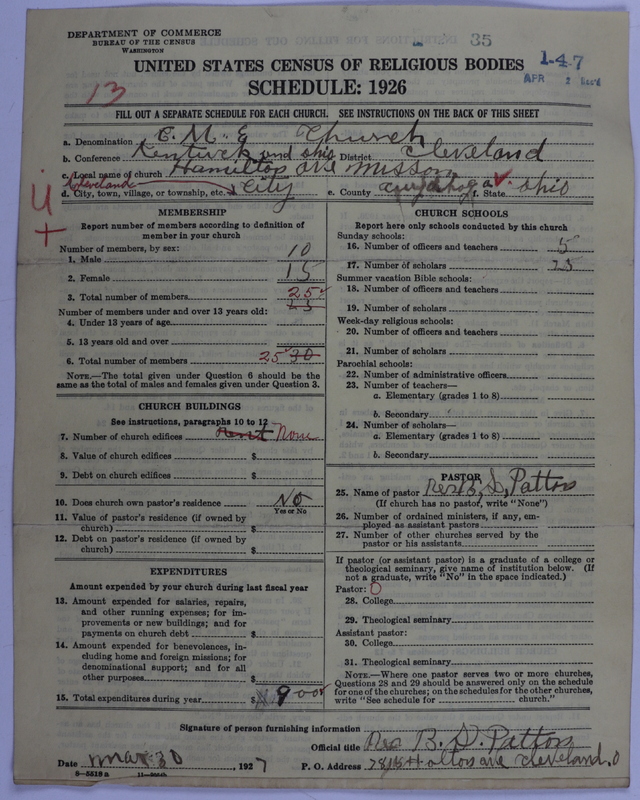 DEPARTMENT OF COMMERCE
BUREAU OF THE CENSUS
WASHINGTON
35
1-4-7
APR 2
UNITED STATES CENSUS OF RELIGIOUS BODIES
SCHEDULE: 1926
13
FILL OUT A SEPARATE SCHEDULE FOR EACH CHURCH. SEE INSTRUCTIONS ON THE BACK OF THIS SHEET
a. Denomination C. M. E. Church
b. Conference Kentuck and ohio District Cleveland
c. Local name of church Hamilton ave misson
d. City, town, village, or township, etc. Cleveland City e. County cuyahoga f. State ohio
MEMBERSHIP
Report number of members according to definition of
member in your church
Number of members, by sex:
1. Male 10
2. Female 15
3. Total number of members 25
Number of members under and over 13 years old:
4. Under 13 years of age
5. 13 years old and over
6. Total number of members 25 30
NOTE.—The total given under Question 6 should be the
same as the total of males and females given under Question 3.
CHURCH BUILDINGS
See instructions, paragraphs 10 to 12
7. Number of church edifices rent None
8. Value of church edifices $
9. Debt on church edifices $
10. Does church own pastor's residence No
Yes or No
11. Value of pastor's residence (if owned by
church) $
12. Debt on pastor's residence (if owned by
church) $
EXPENDITURES
Amount expended by your church during last fiscal year
13. Amount expended for salaries, repairs,
and other running expenses; for im-
provements or new buildings; and for
payments on church debt $
14. Amount expended for benevolences, in-
cluding home and foreign missions; for
denominational support; and for all
other purposes $
15. Total expenditures during year $ 9 00
CHURCH SCHOOLS
Report here only schools conducted by this church
Sunday schools:
16. Number of officers and teachers 5
17. Number of scholars 25
Summer vacation Bible schools:
18. Number of officers and teachers
19. Number of scholars
Week-day religious schools:
20. Number of officers and teachers
21. Number of scholars
Parochial schools:
22. Number of administrative officers
23. Number of teachers—
a. Elementary (grades 1 to 8)
b. Secondary
24. Number of scholars—
a. Elementary (grades 1 to 8)
b. Secondary
PASTOR
25. Name of pastor Rev B, D, Patton
(If church has no pastor, write "None")
26. Number of ordained ministers, if any, em-
ployed as assistant pastors
27. Number of other churches served by the
pastor or his assistants
If pastor (or assistant pastor) is a graduate of a college or
theological seminary, give name of institution below. (If
not a graduate, write "No" in the space indicated.)
Pastor: 0
28. College
29. Theological seminary
Assistant pastor:
30. College
31. Theological seminary
NOTE.—Where one pastor serves two or more churches,
Questions 28 and 29 should be answered only on the schedule
for one of the churches; on the schedules for the other churches,
write "See schedule for church."
Signature of person furnishing information
Official title Rev B. D. Patton
Date mar 30, 1927 P. O. Address ave cleveland. O
8—5518 a